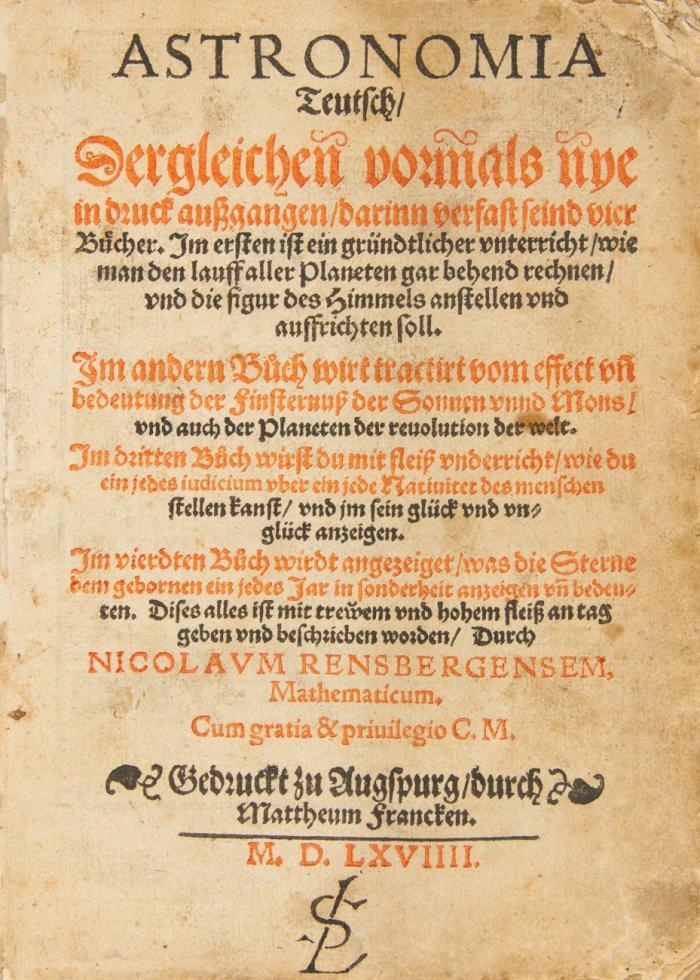 ASTRONOMIA
Teutsch/
Dergleicheñ vorm̃als ñye
in druck außgangen/darinn verfast seind vier
Bücher. Im ersten ist ein gründtlicher vnterricht/wie
man den lauff aller Planeten gar behend rechnen/
vnd die figur des Himmels anstellen vnd
auffrichten soll.
Im andern Bůch wirt tractirt vom effect vñ
bedeutung der Finsternuß der Sonnen vnnd Mons/
vnd auch der Planeten der reuolution der welt.
Im dritten Bůch wirst du mit fleiß vnderricht/wie du
ein jedes iudicium vber ein jede Natiuitet des menschen
stellen kanst/ vnd jm sein glück vnd vn⸗
glück anzeigen.
Im vierdten Bůch wirdt angezeiget/was die Sterne
dem gebornen ein jedes Jar in sonderheit anzeigen vñ bedeu⸗
ten. Dises alles ist mit trewem vnd hohem fleiß an tag
geben vnd beschrieben worden/ Durch
NICOLAVM RENSBERGENSEM,
Mathematicum.
Cum gratia & priuilegio C. M.
Gedruckt zu Augspurg/durch
Mattheum Francken.
M. D. LXVIIII.